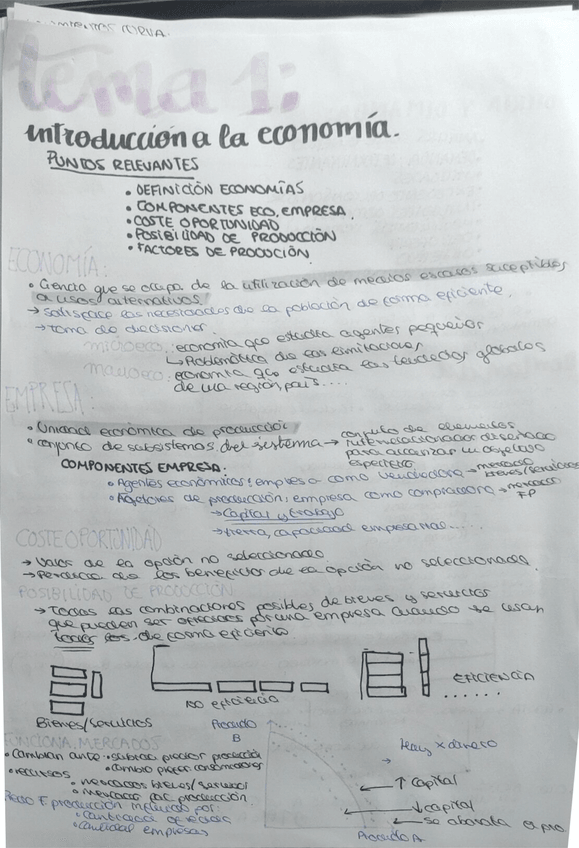 tema 1:
introducción a la economía.
PUNTOS RELEVANTES
• DEFINICIÓN ECONOMÍAS
• COMPONENTES ECO, EMPRESA.
• COSTE OPORTUNIDAD
• POSIBILIDAD DE PRODUCCIÓN
• FACTORES DE PRODUCIÓN.
ECONOMÍA:
• Ciencia que se ocupa de la utilización de medios escasos suceptibles
a usos alternativos.
→ satisface las necesidades de la población de forma eficiente.
→ toma de decisiones.
microeco: economía que estudia agentes pequeños
↳ Problemática de las limitaciones
macroeco: economía que estudia las tendencias globales
de una región, país....
EMPRESA:
• Unidad económica de producción
• conjunto de subsistemas del sistema → conjunto de elementos
interrelacionados diseñado
para alcanzar un objetivo
específico
COMPONENTES EMPRESA:
• Agentes económicos: empresa como vendedora → mercado
bienes/servicios
• Factores de producción: empresa como compradora → mercado
FP
→ Capital y trabajo
→ tierra, capacidad empresarial.....
COSTE OPORTUNIDAD
→ Valor de la opción no seleccionada
→ Pérdida de los beneficios de la opción no seleccionada.
POSIBILIDAD DE PRODUCCIÓN
→ Todas las combinaciones posibles de bienes y servicios
que pueden ser ofrecidos por una empresa cuando se usan
todos los de forma eficiente
EFICIENCIA
NO eficiencia
Bienes/servicios
FUNCIONA: MERCADOS
• Cambian ante • subidas precios producción
• cambio consumidores
• recursos
• mercados bienes/servicios
• mercado fac. producción
Precio F. producción influido por:
• cantidad
• cantidad empresas
B
→
← ↑ capital
← ↓ capital
← se abarata el pro.
A